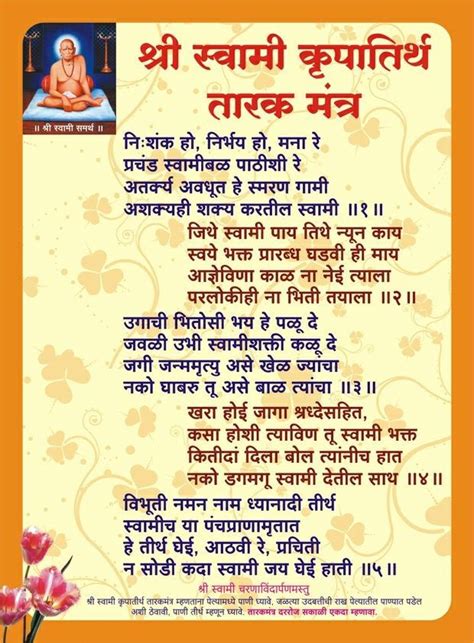 श्री स्वामी कृपातिर्थ
तारक मंत्र
॥ श्री स्वामी समर्थ ॥
निःशंक हो, निर्भय हो, मना रे
प्रचंड स्वामीबळ पाठीशी रे
अतर्क्य अवधूत हे स्मरण गामी
अशक्यही शक्य करतील स्वामी ॥१॥
जिथे स्वामी पाय तिथे न्यून काय
स्वये भक्त प्रारब्ध घडवी ही माय
आज्ञेविणा काळ ना नेई त्याला
परलोकीही ना भिती तयाला ॥२॥
उगाची भितोसी भय हे पळू दे
जवळी उभी स्वामीशक्ती कळू दे
जगी जन्ममृत्यु असे खेळ ज्यांचा
नको घाबरु तू असे बाळ त्यांचा ॥३॥
खरा होई जागा श्रध्देसहित,
कसा होशी त्याविण तू स्वामी भक्त
कितीदां दिला बोल त्यांनीच हात
नको डगमगू स्वामी देतील साथ ॥४॥
विभूती नमन नाम ध्यानादी तीर्थ
स्वामीच या पंचप्राणामृतात
हे तीर्थ घेई, आठवी रे, प्रचिती
न सोडी कदा स्वामी जय घेई हाती ॥५॥
श्री स्वामी चरणाविंदार्पणमस्तु
श्री स्वामी कृपातिर्थ तारकमंत्र म्हणताना पेल्यामध्ये पाणी घ्यावे. जळत्या उदबत्तीची राख पेल्यातील पाण्यात पडेल
अशी ठेवावी, पाणी तीर्थ म्हणून घ्यावे. तारकमंत्र दररोज सकाळी एकदा म्हणावा.